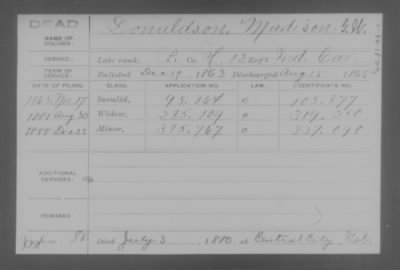 DEAD
NAME OF SOLDIER: Donaldson, Madison G.W.
SERVICE: Late rank, Co. H, 13 Reg't Ind. Cav.
TERM OF SERVICE: Enlisted Dec 19, 1863 Discharged Aug 15, 1865
DATE OF FILING. CLASS. APPLICATION NO. LAW. CERTIFICATE NO.
1865 Nov. 17 Invalid, 95.844 0 105.877
Aug 30 Widow, 285.109 0
1888 Dec 22 Minor, 385.767 0 337.098
ADDITIONAL SERVICES:
REMARKS:
Died July 3, 1880, at Central City, Neb